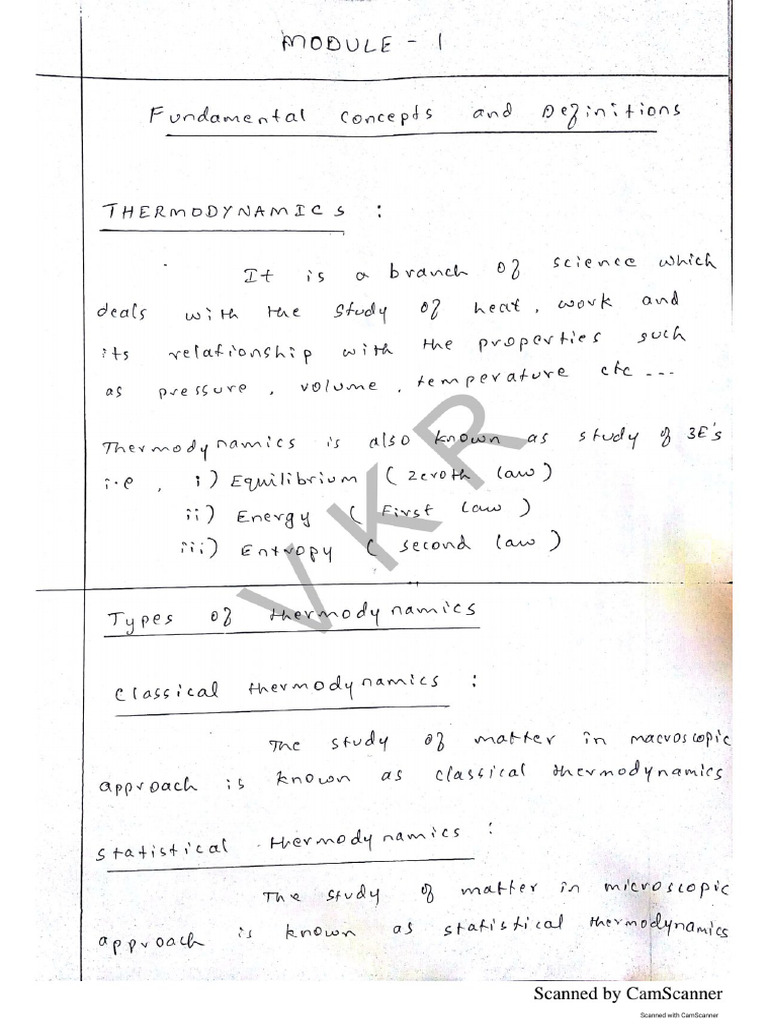 MODULE - 1
Fundamental Concepts and Definitions
THERMODYNAMICS :
It is a branch of science which
deals with the study of heat, work and
its relationship with the properties such
as pressure, volume, temperature etc ---
Thermodynamics is also known as study of 3E's
i.e, i) Equilibrium (zeroth law)
ii) Energy (First law)
iii) Entropy (second law)
Types of thermodynamics
Classical thermodynamics :
The study of matter in macroscopic
approach is known as classical thermodynamics
Statistical thermodynamics :
The study of matter in microscopic
approach is known as statistical thermodynamics
VKR
Scanned by CamScanner
Scanned with CamScanner